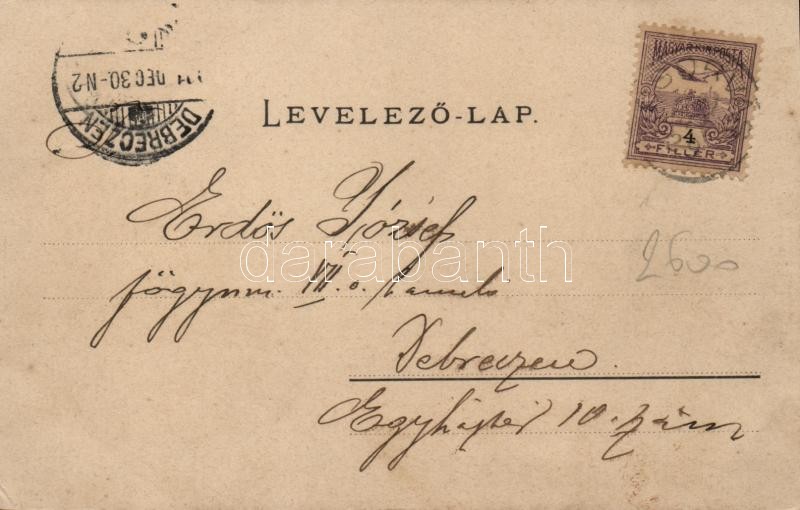 DEC 30-N2
DEBRECZEN
MAGYAR KIR. POSTA
4
FILLÉR
LEVELEZŐ-LAP.
Erdős József
főgymn. VII. o. tanuló
Debreczen.
Egyháztér 10. szám
2600
darabanth